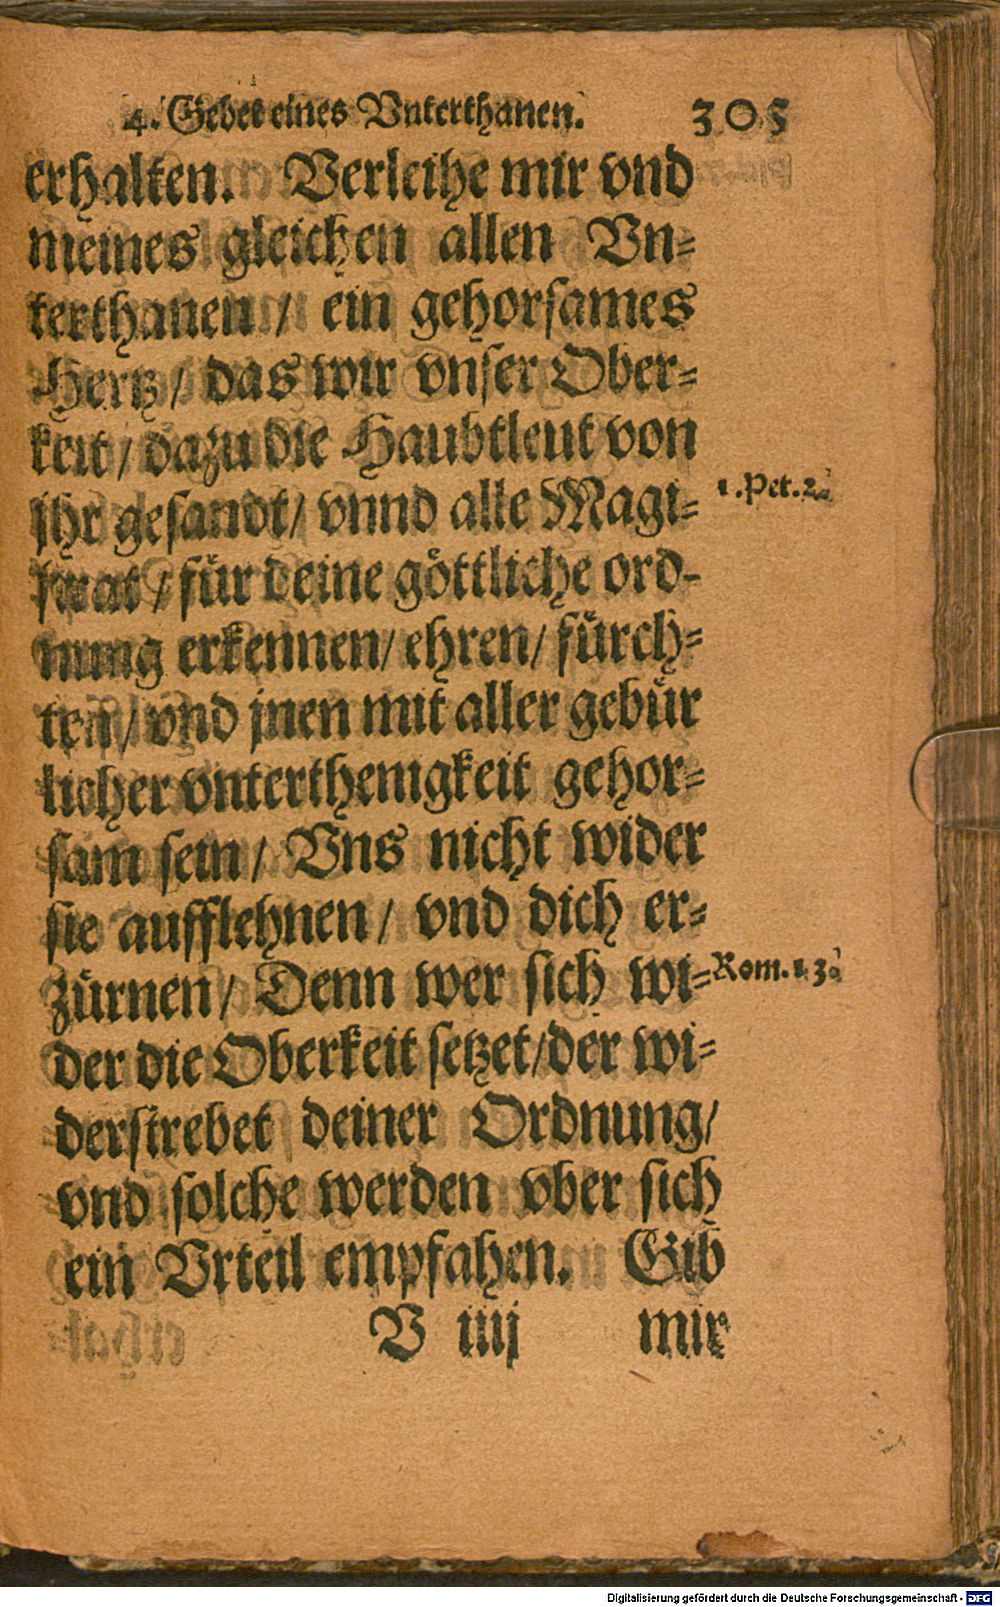 4. Gebet eines Vnterthanen. 305
erhalten. Verleihe mir vnd
meines gleichen allen Vn-
terthanen / ein gehorsames
Hertz / das wir vnser Ober-
keit / dazu die Haubtleut von
jhr gesandt / vnnd alle Magi-
strat / für deine göttliche ord-
nung erkennen / ehren / fürch-
ten / vnd jnen mit aller gebür
licher vnterthenigkeit gehor-
sam sein / Vns nicht wider
sie aufflehnen / vnd dich er-
zürnen / Denn wer sich wi-
der die Oberkeit setzet / der wi-
derstrebet deiner Ordnung /
vnd solche werden vber sich
ein Vrteil empfahen. Gib
V iiij mir
1. Pet. 2.
Rom. 13.
Digitalisierung gefördert durch die Deutsche Forschungsgemeinschaft - DFG